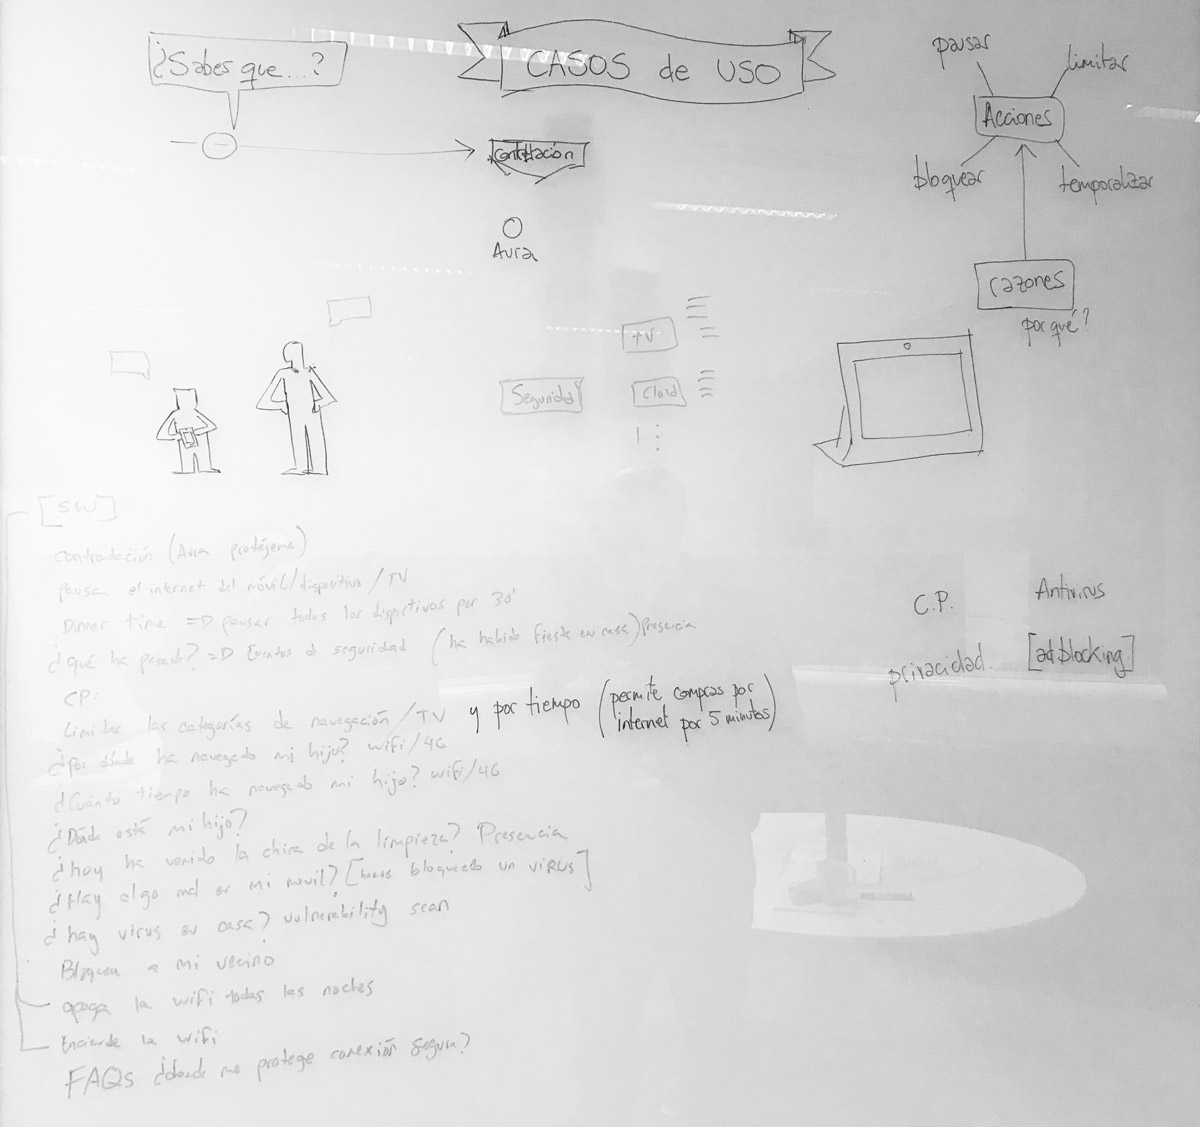 ¿Sabes que...?
CASOS de USO
pausar
limitar
Acciones
bloquear
temporalizar
razones
por qué?
contratación
Aura
TV
Seguridad
Cloud
[SW]
contratación (Aura protéjeme)
pausa el internet del móvil/dispositivo/TV
Dinner time => pausar todos los dispositivos por 30'
¿qué ha pasado? => Eventos de seguridad (ha habido fiesta en casa) presencia
CP:
Limitar las categorías de navegación/TV y por tiempo (permite compras por
internet por 5 minutos)
¿por dónde ha navegado mi hijo? wifi/4G
¿Cuánto tiempo ha navegado mi hijo? wifi/4G
¿Dónde está mi hijo?
¿hoy ha venido la chica de la limpieza? Presencia
¿Hay algo mal en mi movil? [hemos bloqueado un VIRUS]
¿hay virus en casa? vulnerability scan
Bloquea a mi vecino
apaga la wifi todas las noches
Enciende la wifi
FAQs ¿dónde me protege conexión segura?
C.P.
Antivirus
privacidad.
[ad.blocking]